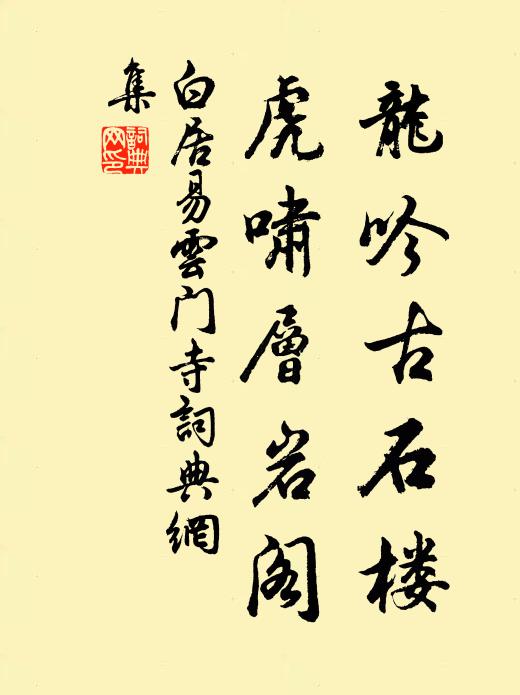 龍吟古石楼
虎嘯層岩阁
白居易雲门寺詞典網
集
詞典网印